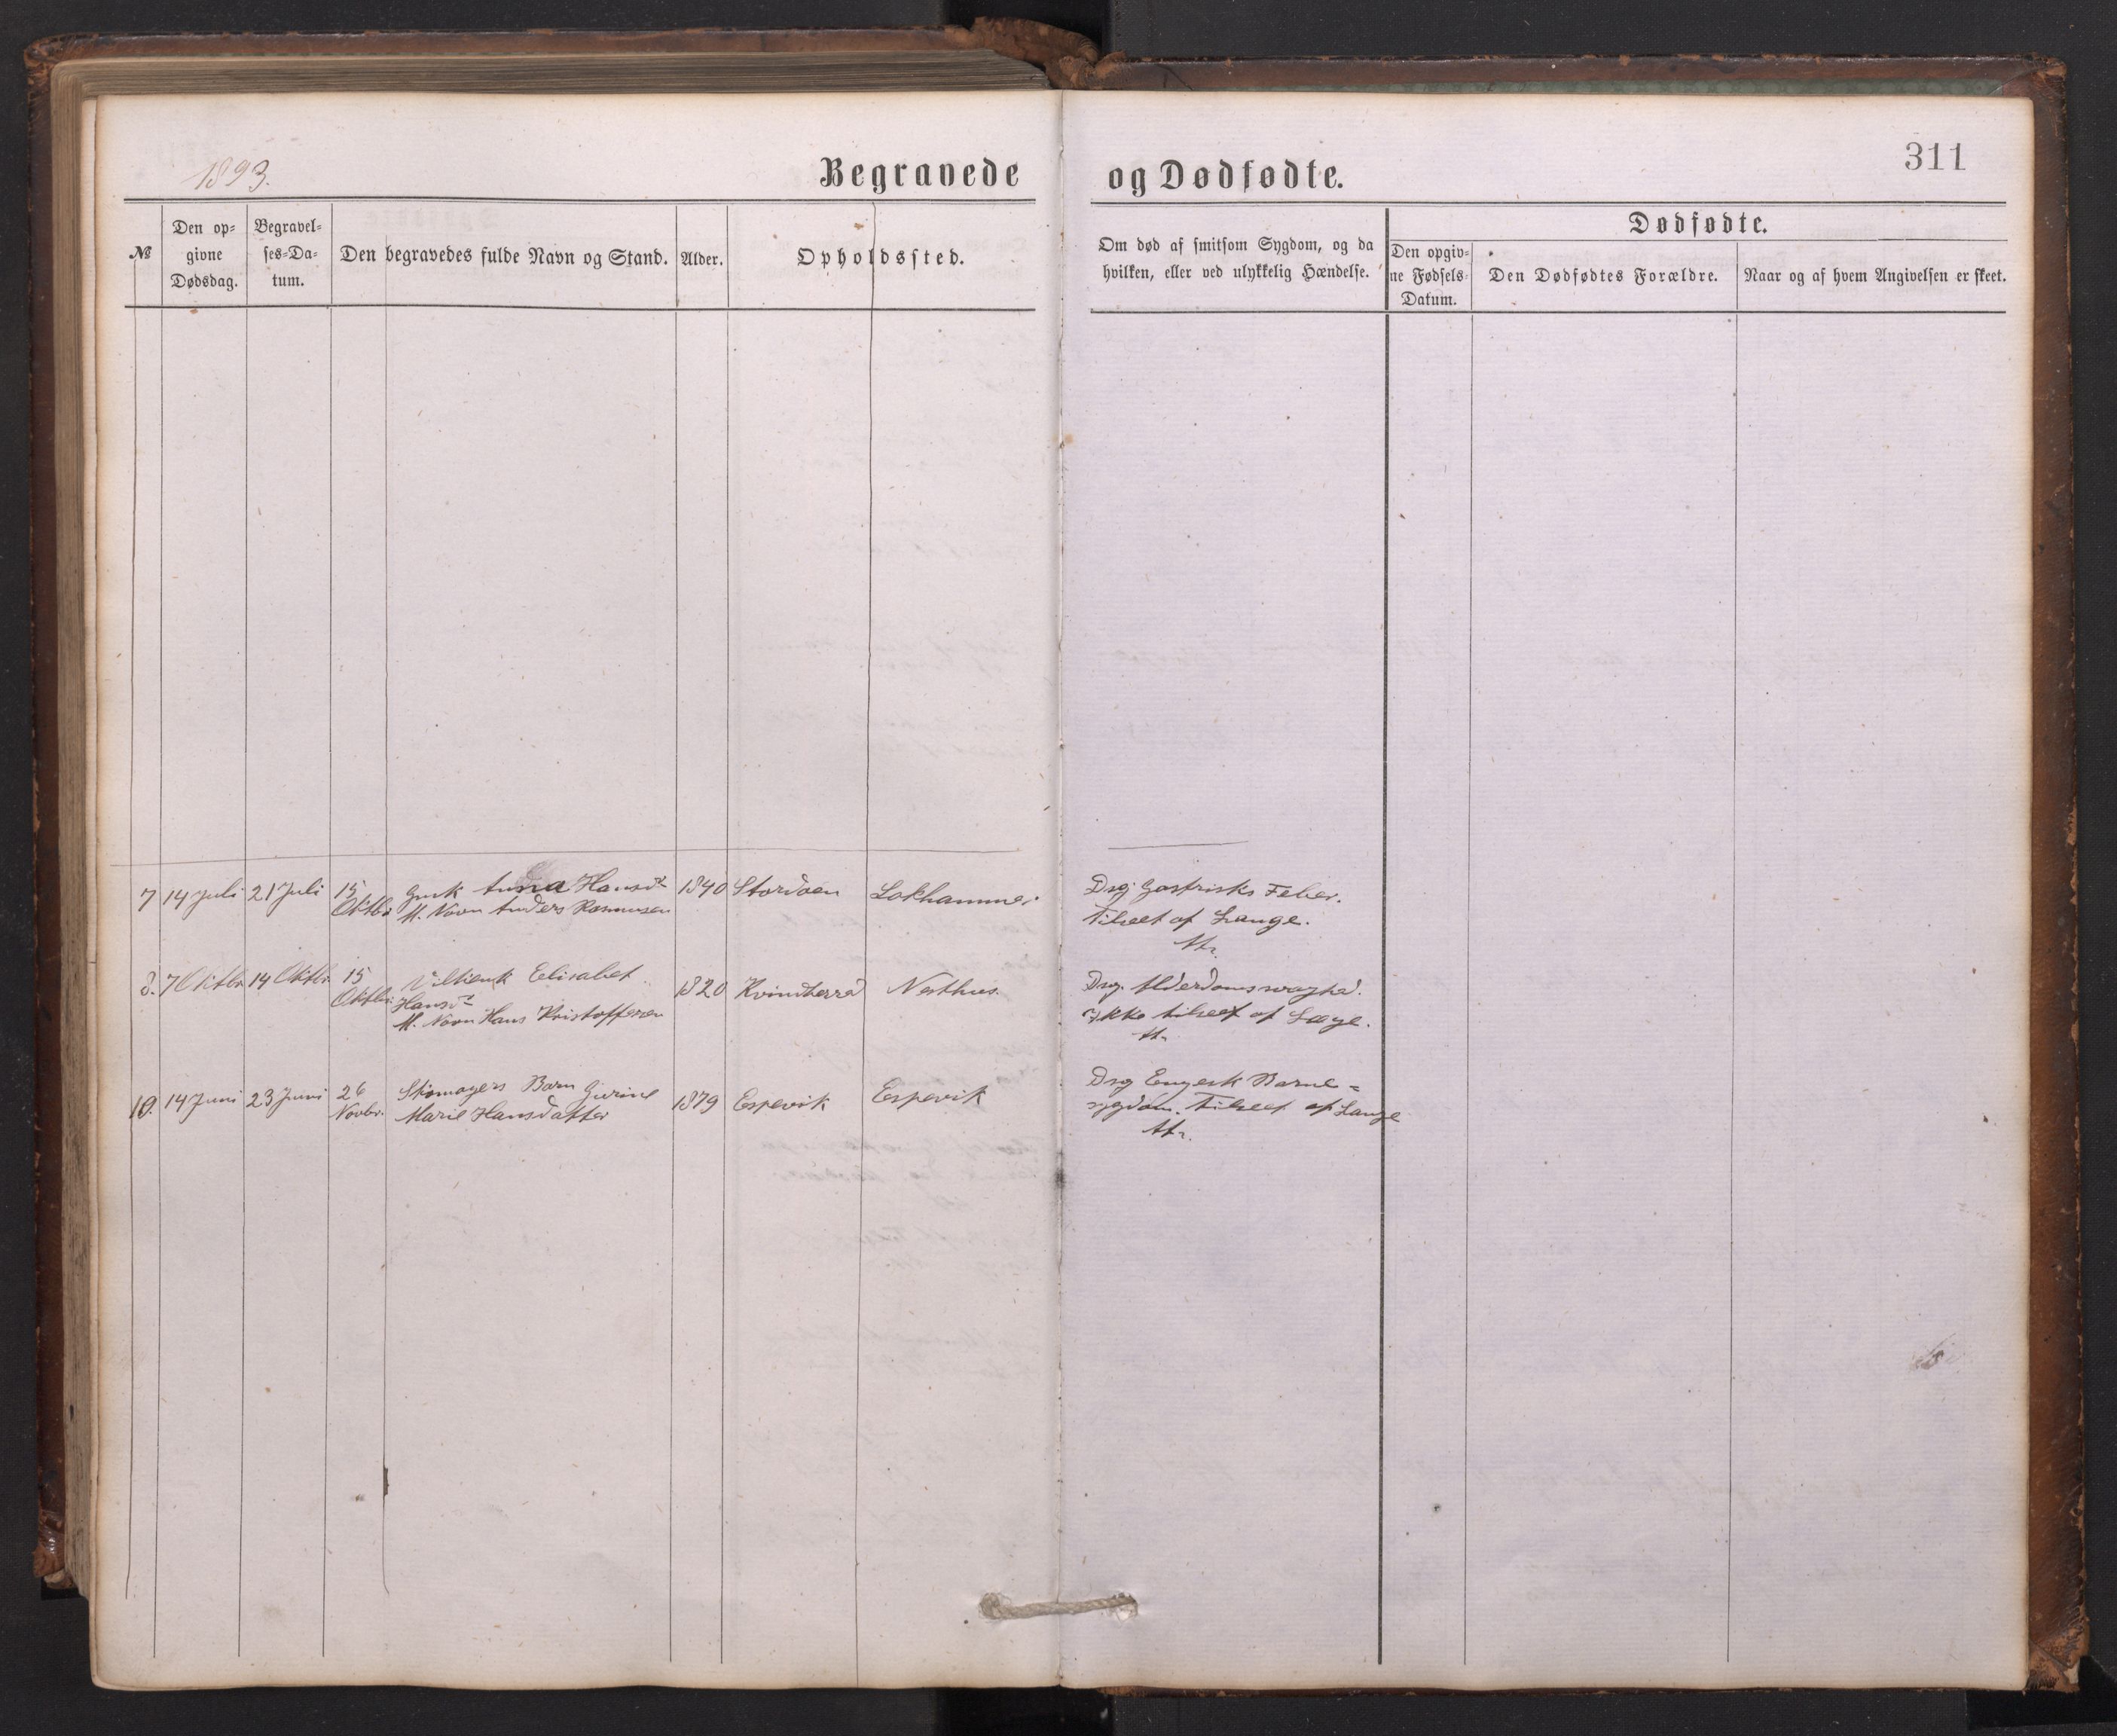 1893.
Begravede
og Dødfødte.
311
№
Den op-
givne
Dødsdag.
Begravel-
ses-Da-
tum.
Den begravedes fulde Navn og Stand.
Alder.
Opholdssted.
Om død af smitsom Sygdom, og da
hvilken, eller ved ulykkelig Hændelse.
Dødfødte.
Den opgiv-
ne Fødsels-
Datum.
Den Dødfødtes Forældre.
Naar og af hvem Angivelsen er skeet.
7 14 Juli 21 Juli 15 Oktbr Gmk Anna Hansdt 1840 Stordøen Lokhammer
M. Navn Anders Rasmussen
Dsg: Gastrisks Feber.
Tilseet af Lange.
8. 7 Oktbr 14 Oktbr 15 Oktbr. Elisabet 1820 Kvindherred Nesthus.
Hansdt
M. Navn Hans Kristoffersen
Dsg. Alderdomssvaghed.
Ikke tilseet af Læge.
10. 14 Juni 23 Juni 26 Novbr. Skomagers Barn Gurine 1879 Espevik Espevik
Marie Hansdatter
Dsg Engelsk Barne-
sygdom. Tilseet af Lange